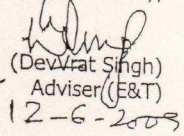 (DevVrat Singh)
Adviser (E&T)
12-6-2009